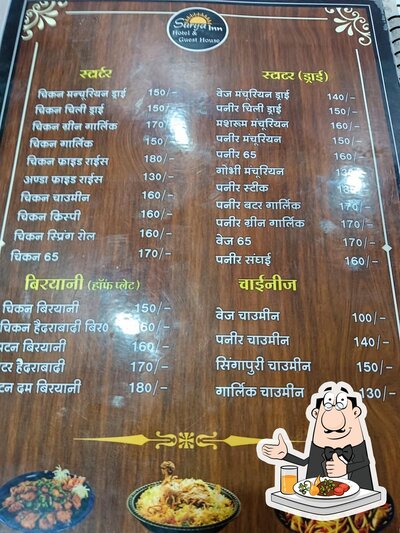 Surya Inn
Hotel &
Guest House
स्टार्टर
चिकन मन्चुरियन ड्राई 150/-
चिकन चिली ड्राई 150/-
चिकन ग्रीन गार्लिक 170
चिकन गार्लिक 150/
चिकन फ्राइड राईस 180/-
अण्डा फाइड राईस 130/-
चिकन चाउमीन 160/-
चिकन क्रिस्पी 160/-
चिकन स्प्रिंग रोल 160/-
चिकन 65 170/-
स्टार्टर (ड्राई)
वेज मंचुरियन ड्राई 140/-
पनीर चिली ड्राई 150/-
मशरूम मंचुरियन 160/-
पनीर मंचुरियन 150/-
पनीर 65 160/-
गोभी मंचुरियन
पनीर स्टीक
पनीर बटर गार्लिक 170/-
पनीर ग्रीन गार्लिक 170/-
वेज 65 170/-
पनीर संघाई 160/-
बिरयानी (हॉफ प्लेट)
चिकन बियानी 150/-
चिकन हैदराबादी बिर० 60/-
मटन बियानी 160/-
हैदराबादी 170/-
दम बियानी 180/-
चाईनीज
वेज चाउमीन 100/-
पनीर चाउमीन 140/-
सिंगापुरी चाउमीन 150/-
गार्लिक चाउमीन 130/-